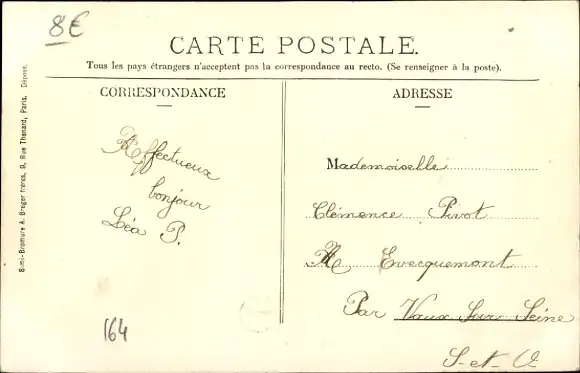 8€
CARTE POSTALE.
Tous les pays étrangers n'acceptent pas la correspondance au recto. (Se renseigner à la poste).
CORRESPONDANCE
Affectueux
bonjour
Léa P.
164
ADRESSE
Mademoiselle
Clémence Pivot
A Evecquemont
Par Vaux Sur Seine
S-et-O
Simi-Bromure A. Breger frères, 9, Rue Thénard, Paris. Déposé.